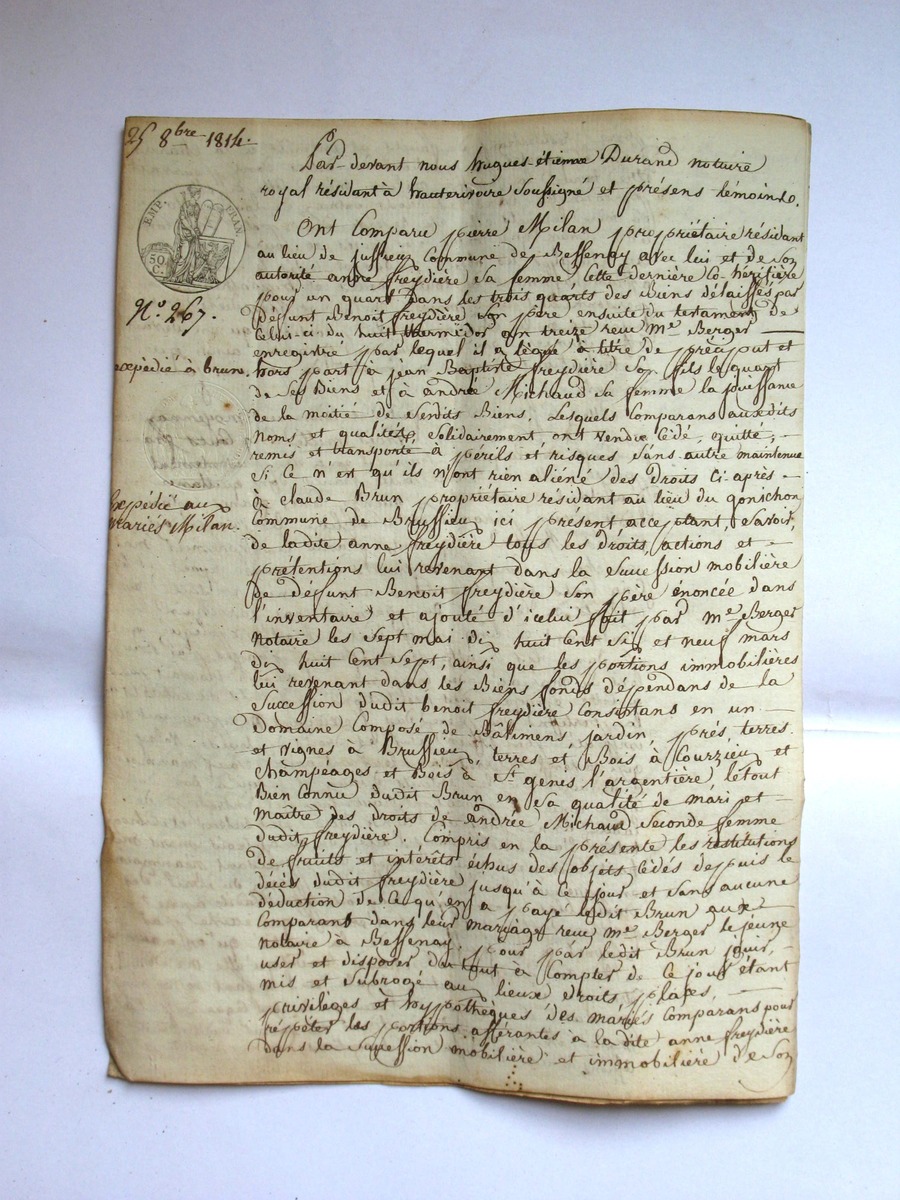 25 8bre 1814.
EMP. FRAN.
50 C.
N.o 267.
expédié à brun.
expédié aux
mariés Milan.
Par-devant nous hugues-étienne Durand notaire
royal résidant à hauterivoire soussigné et présens témoins.
Ont Comparu pierre Milan propriétaire résidant
au lieu de jussieux Commune de Bessenay avec lui et de Son
autorité anne freydière Sa femme, Cette dernière Co-héritière
pour un quart dans les trois quarts des Biens délaissés par
Défunt Benoit freydière Son père, ensuite du testament de
Celui-ci du huit thermidor an treize reçu M.e Berger
enregistré par lequel il a légué à titre de préciput et
hors part à jean Baptiste freydière Son fils le quart
de Ses Biens et à andré Michaud Sa femme la jouissance
de la moitié de Sesdits Biens. Lesquels Comparans auxdits
noms et qualités, Solidairement ont vendu Cédé, quitté,
remis et transporté à périls et risques Sans autre maintenue
Si Ce n'est qu'ils n'ont rien aliéné des Droits Ci-après
à claude Brun propriétaire résidant au lieu du gonichon
Commune de Brussieu, ici présent acceptant, Savoir,
de ladite anne freydière tous les droits, actions et
prétentions lui revenant dans la Succession mobilière
de défunt Benoit freydière Son père énoncée dans
l'inventaire et ajouté d'icelui fait par M.e Berger
notaire les Sept mai dix huit Cent Six et neuf mars
dix huit Cent Sept, ainsi que les portions immobilières
lui revenant dans les Biens fonds dépendans de la
Succession dudit benoit freydière Consistans en un
Domaine Composé de Bâtimens, jardin, prés, terres
et vignes à Brussieu, terres et Bois à Courzieu et
champéages et Bois à St genis l'argentière le tout
Bien Connu dudit Brun en Sa qualité de mari et
maître des droits de andrée Michaud Seconde femme
dudit freydière. Compris en la présente les restitutions
de fruits et intérêts échus des objets Cédés depuis le
décès dudit freydière jusqu'à Ce jour et Sans aucune
déduction de Ce qu'en a payé ledit Brun aux
Comparans dans leur mariage reçu M.e Berger le jeune
notaire à Bessenay, pour par ledit Brun jouir,
user et disposer du tout à Compter de Ce jour étant
mis et Subrogé aux lieux Droits, places,
privilèges et hypothèques des mariés Comparans pour
répéter les portions afférantes à la dite anne freydière
dans la Succession mobilière et immobilière de Son